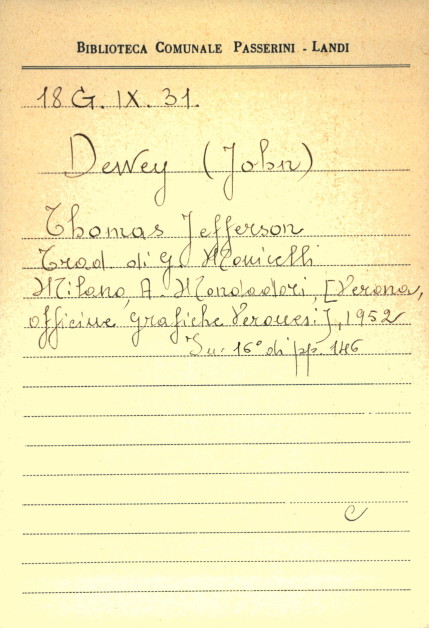 BIBLIOTECA COMUNALE PASSERINI - LANDI
18 G. IX. 31.
Dewey (John)
Thomas Jefferson
Trad di G. Monicelli
Milano, A. Mondadori, [Verona,
officine grafiche Veronesi], 1952
In: 16° di pp. 146
C